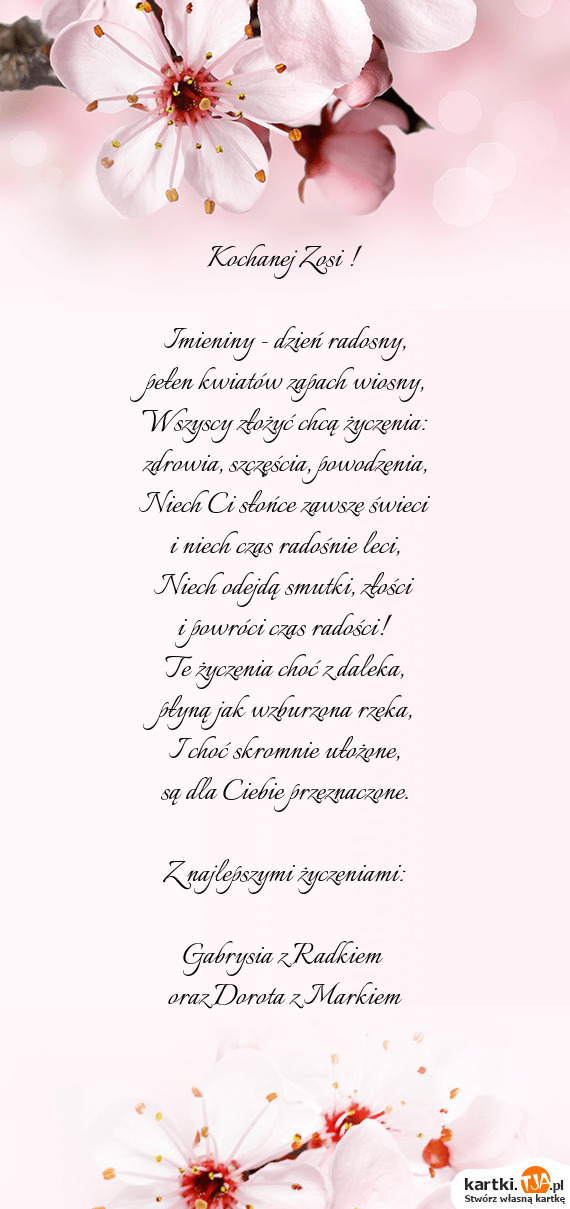 Kochanej Zosi !
Imieniny - dzień radosny,
pełen kwiatów zapach wiosny,
Wszyscy złożyć chcą życzenia:
zdrowia, szczęścia, powodzenia,
Niech Ci słońce zawsze świeci
i niech czas radośnie leci,
Niech odejdą smutki, złości
i powróci czas radości!
Te życzenia choć z daleka,
płyną jak wzburzona rzeka,
I choć skromnie ułożone,
są dla Ciebie przeznaczone.
Z najlepszymi życzeniami:
Gabrysia z Radkiem
oraz Dorota z Markiem
kartki.TJA.pl
Stwórz własną kartkę